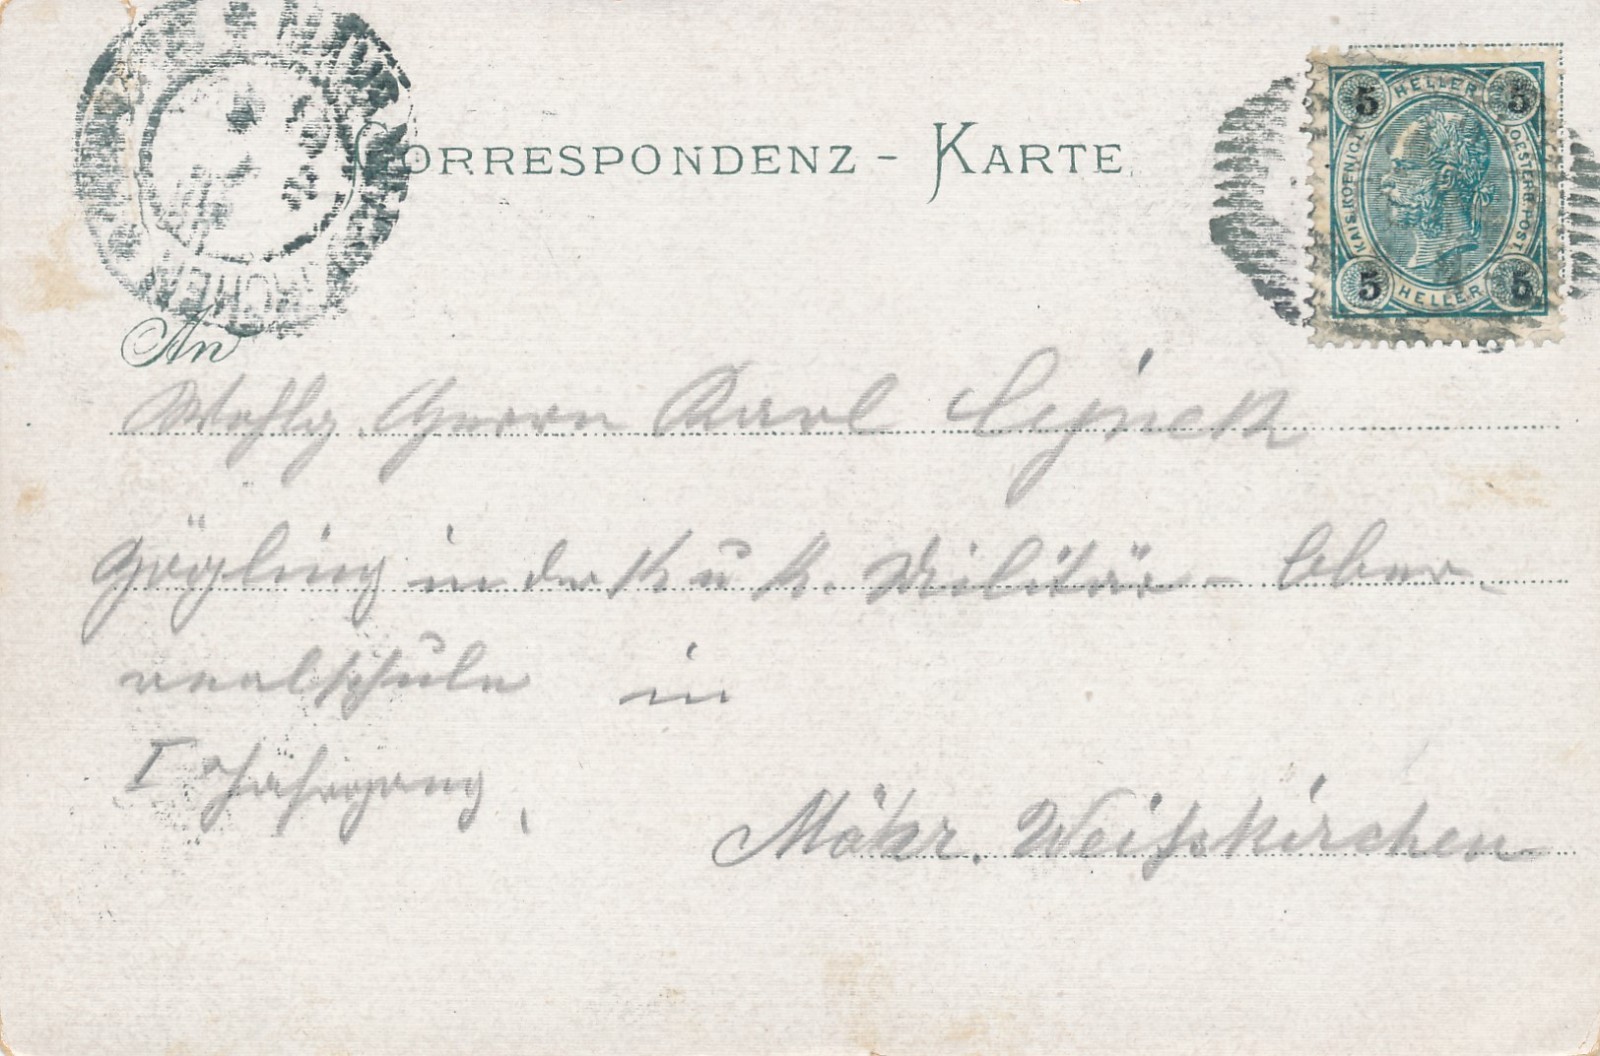 CORRESPONDENZ - KARTE
HELLER
5 5
KAIS. KOENIGL. OESTERR. POST.
5 5
HELLER
An
Wohlg. Herrn Karl
Zögling in der K u K. Militär - Ober
realschule in
I Jahrgang,
Mähr. Weisskirchen